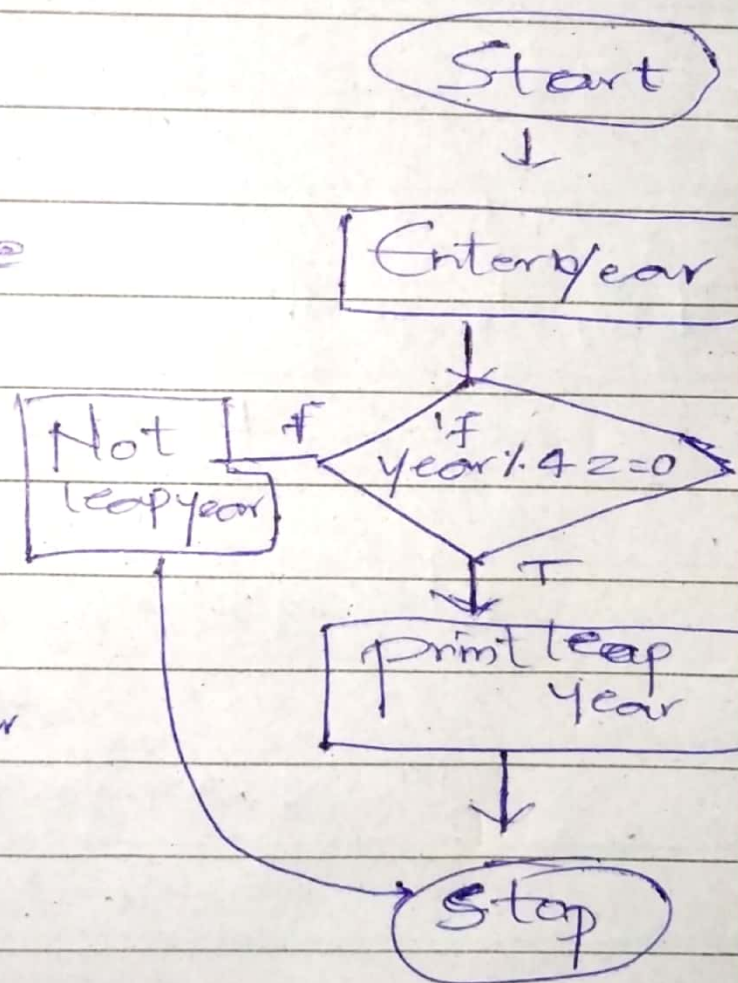 Start
Enter year
F
if
year % 4 = = 0
Not
leap year
T
print leap
year
Stop